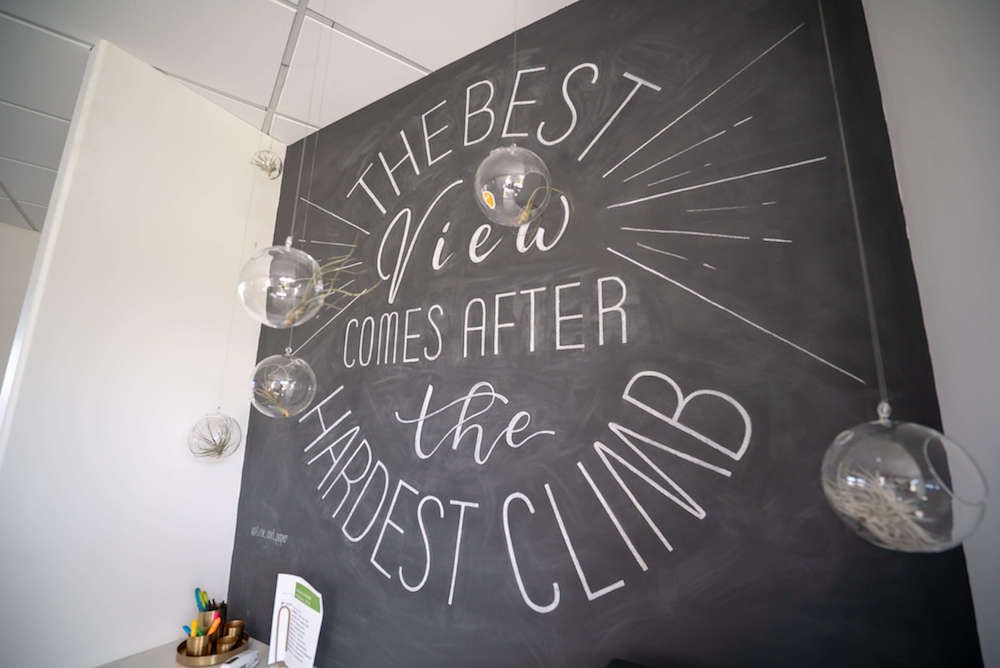 THE BEST
View
COMES AFTER
the
HARDEST CLIMB